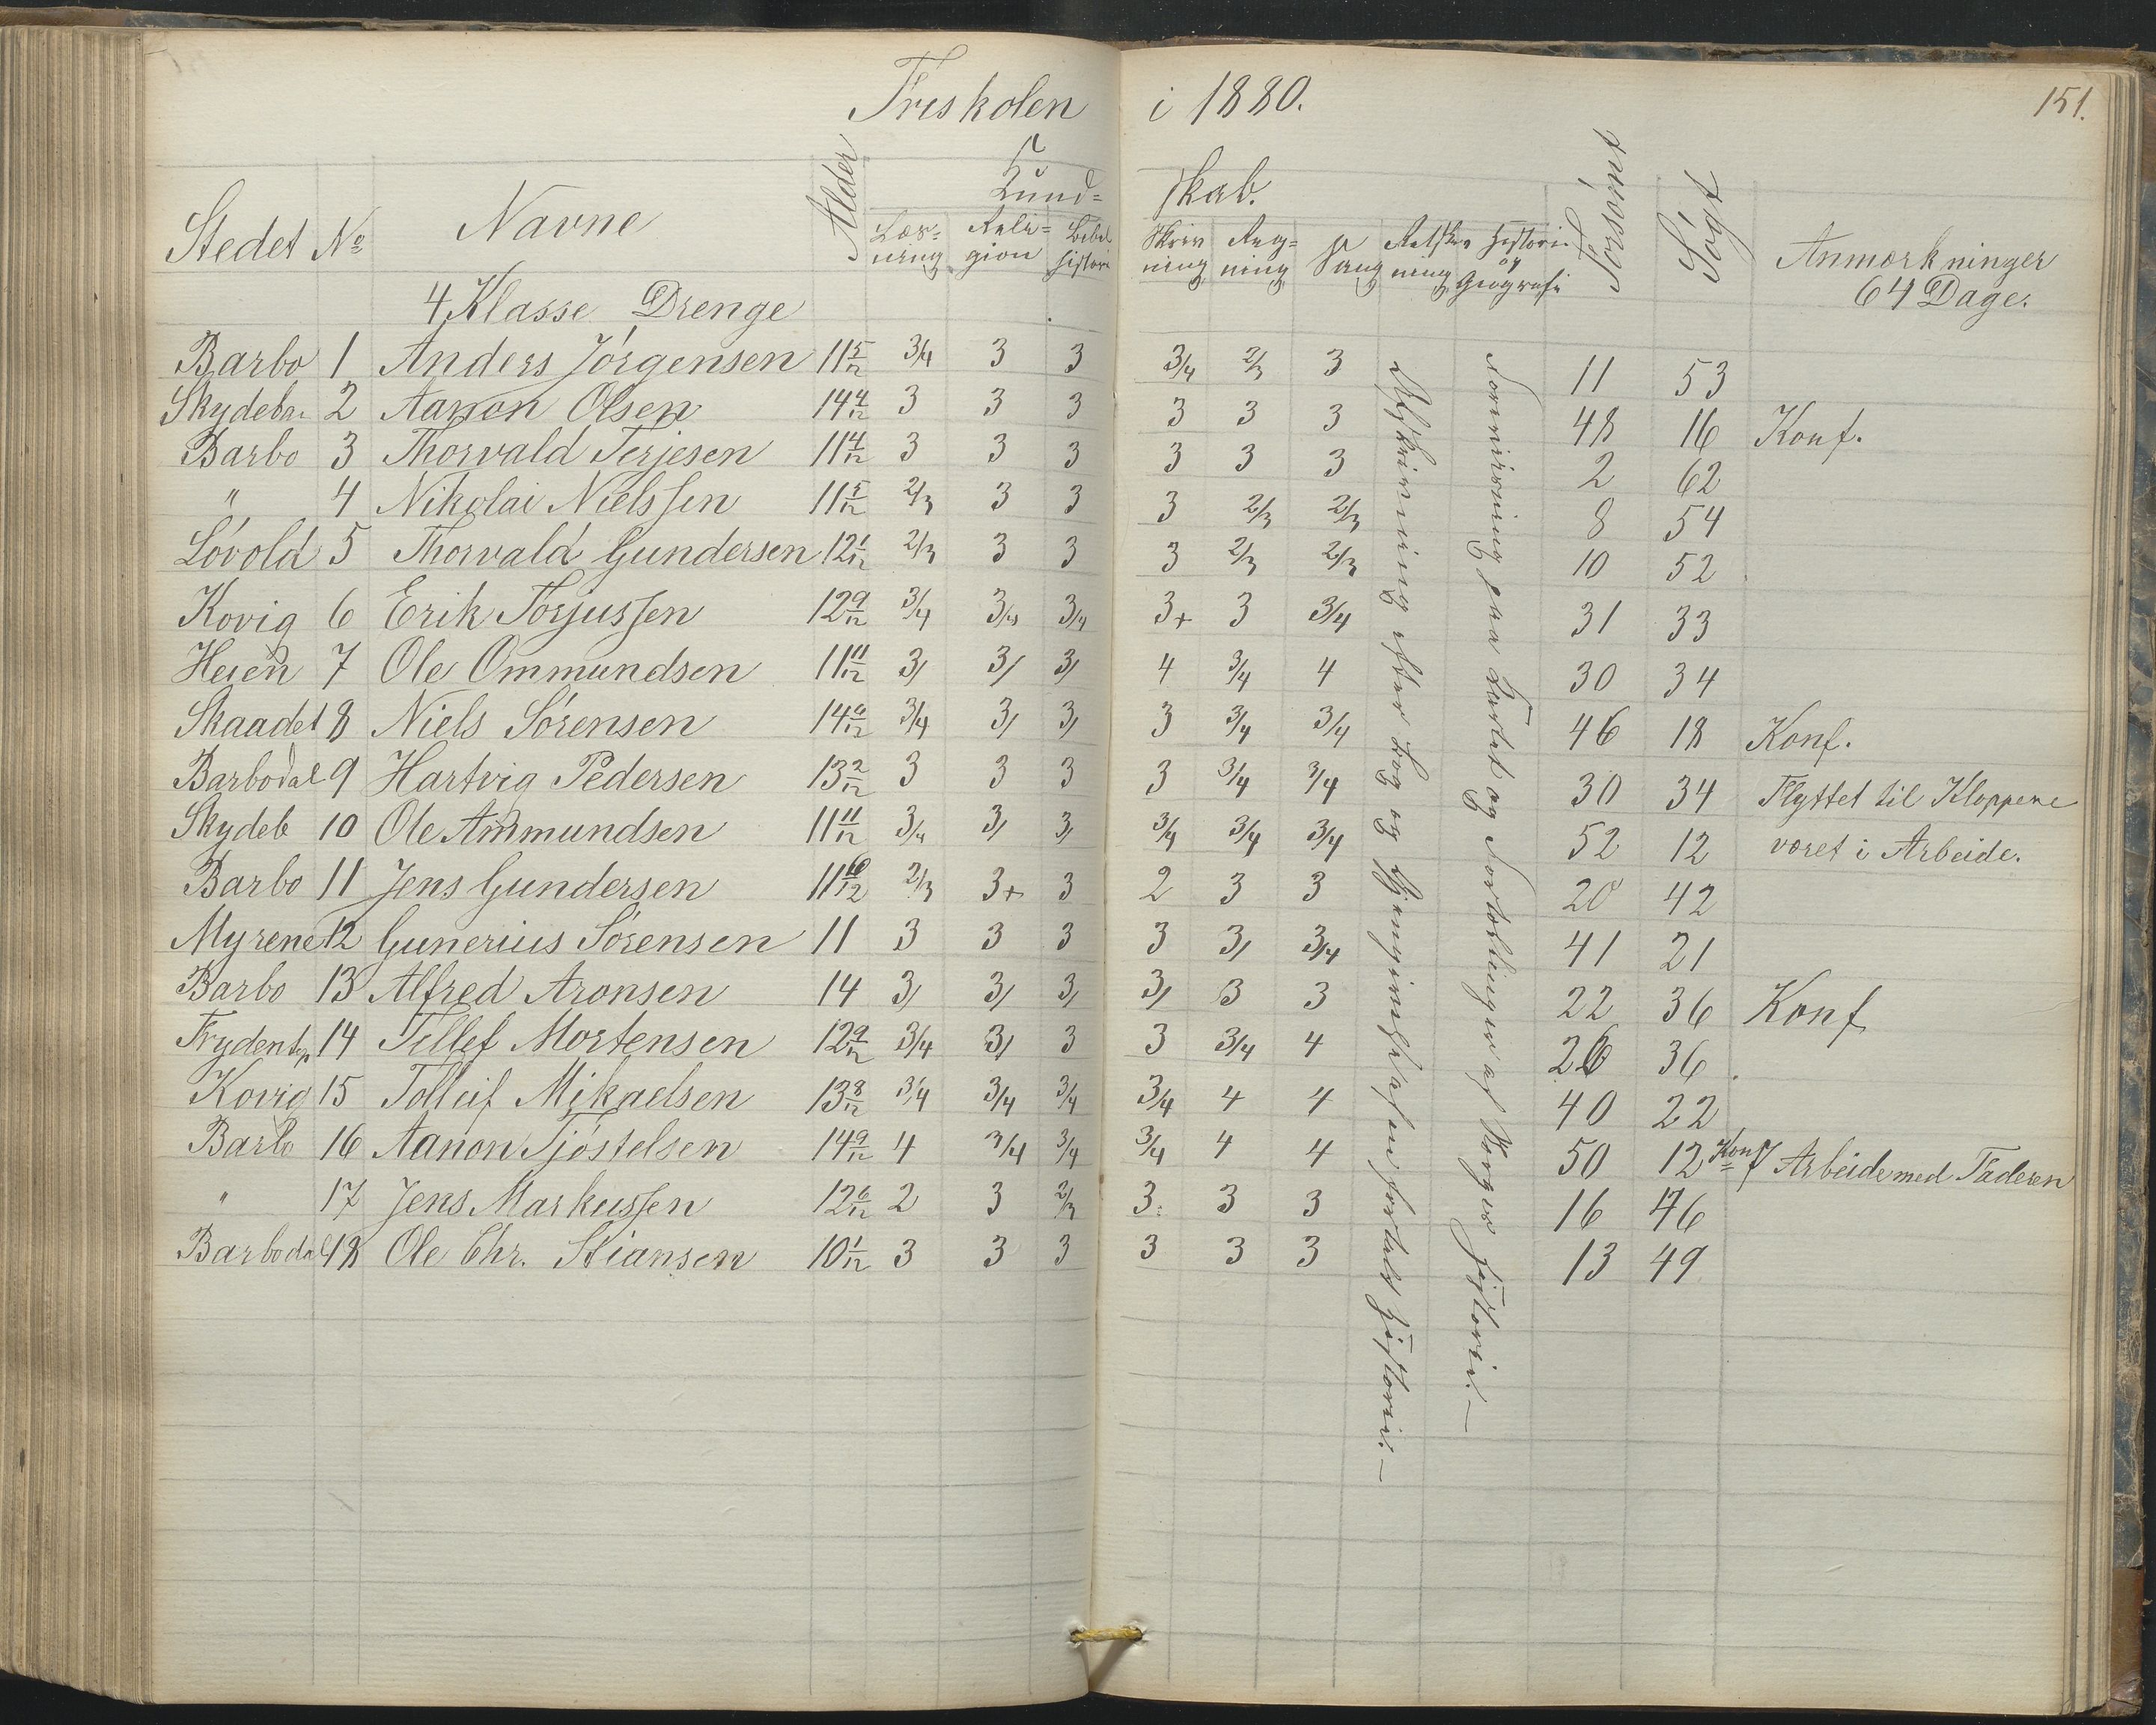 Friskolen i 1880. 151.
Stedet No Navne Alder Kund= skab. Forsømt Søgt Anmærkninger
Læs= ning Reli= gion Bibel historie Skriv ning Reg= ning Sang Retskr ning Historie og Geografi
4 Klasse Drenge 64 Dage.
Barbo 1 Anders Jörgensen 11 5/12 3/4 3 3 3/4 2/3 3 11 53
Skydeba 2 Aanon Olsen 14 4/12 3 3 3 3 3 3 48 16 Konf.
Barbo 3 Thorvald Terjesen 11 4/12 3 3 3 3 3 3 2 62
" 4 Nikolai Nielssen 11 5/12 2/3 3 3 3 2/3 2/3 8 54
Lövold 5 Thorvald Gundersen 12 1/12 2/3 3 3 3 2/3 2/3 10 52
Kovig 6 Erik Torjussen 12 9/12 3/4 3/4 3/4 3+ 3 3/4 31 33
Heien 7 Ole Ommundsen 11 11/12 3/ 3/ 3/ 4 3/4 4 30 34
Skaadet 8 Niels Sörensen 14 6/12 3/4 3/ 3/ 3 3/4 3/4 46 18 Konf.
Barbodal 9 Hartvig Pedersen 13 2/12 3 3 3 3 3/4 3/4 30 34 Flyttet til Kloppene
Skydeb 10 Ole Ammundsen 11 11/12 3/4 3/ 3/ 3/4 3/4 3/4 52 12 været i Arbeide.
Barbo 11 Jens Gundersen 11 10/12 2/3 3+ 3 2 3 3 20 42
Myrene 12 Gunerius Sörensen 11 3 3 3 3 3/ 3/4 41 21
Barbo 13 Alfred Aronsen 14 3/ 3/ 3/ 3/ 3 3 22 36 Konf
14 Tellef Mortensen 12 9/12 3/4 3/ 3 3 3/4 4 26 36
Kovig 15 Tolleif Mikaelsen 13 8/12 3/4 3/4 3/4 3/4 4 4 40 22
Barbo 16 Aanon Tjöstelsen 14 9/12 4 3/4 3/4 3/4 4 4 50 12 Konf Arbeide med Faderen
" 17 Jens Markussen 12 6/12 2 3 2/3 3 3 3 16 46
Barbodal 18 Ole Chr. Stiansen 10 1/12 3 3 3 3 3 3 13 49
Afskrivning efter Bog og Gjengivelse af en fortalt Historie. —
Forevisning paa Kartet og Fortællinger af Norges Historie. —